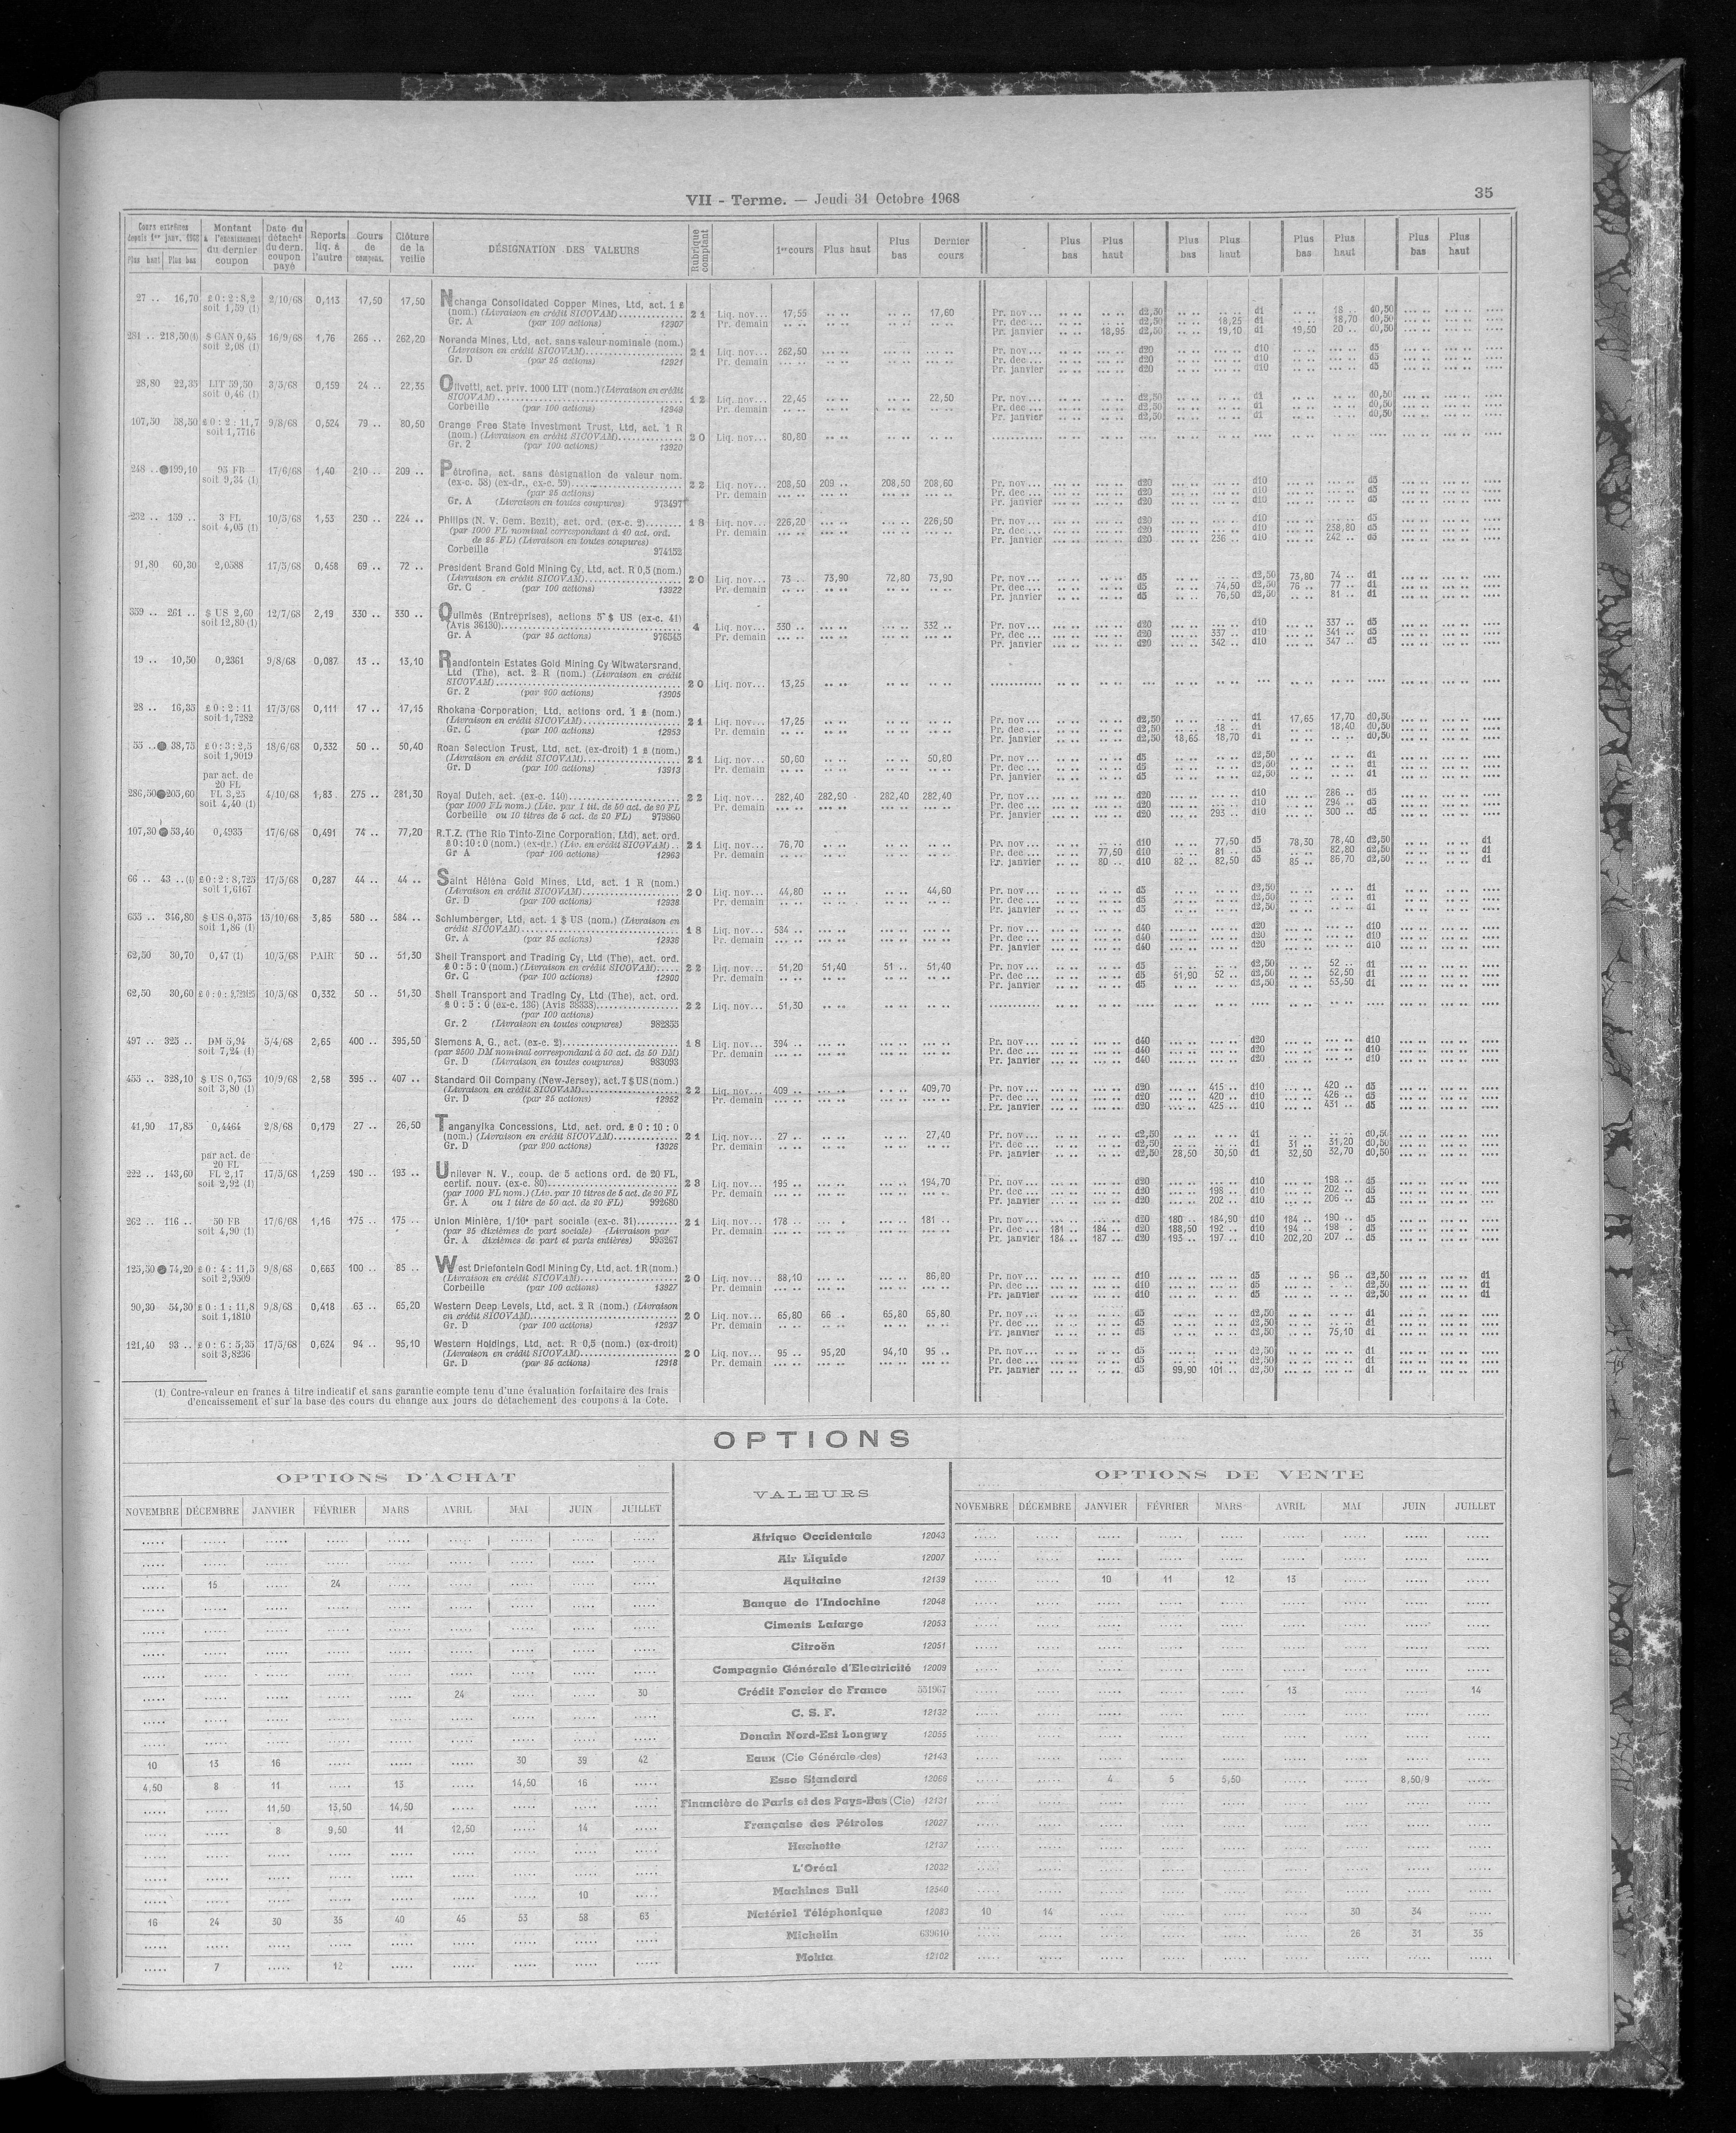 VII - Terme. — Jeudi 31 Octobre 1968
35
Cours extrêmes depuis 1er janv. 1968 Plus haut Plus bas | Montant à l'encaissement du dernier coupon | Date du détacht du dern. coupon payé | Reports liq. à l'autre | Cours de compens. | Clôture de la veille | DÉSIGNATION DES VALEURS | Rubrique comptant | 1er cours | Plus haut | Plus bas | Dernier cours | Plus bas | Plus haut | Plus bas | Plus haut | Plus bas | Plus haut | Plus bas | Plus haut
27 .. 16,70 £ 0 : 2 : 8,2 2/10/68 0,113 17,50 17,50 Nchanga Consolidated Copper Mines, Ltd, act. 1 £
soit 1,59 (1) (nom.) (Livraison en crédit SICOVAM) 21 Liq. nov... 17,55 .. .. .. .. 17,60 Pr. nov... d2,50 d1 18 .. d0,50
Gr. A (par 100 actions) 12307 Pr. demain Pr. dec... d2,50 18,25 d1 18,70 d0,50
Pr. janvier 18,95 d2,50 19,10 d1 19,50 20 .. d0,50
281 .. 218,50(1) $ CAN 0,45 16/9/68 1,76 265 .. 262,20 Noranda Mines, Ltd, act. sans valeur nominale (nom.)
soit 2,08 (1) (Livraison en crédit SICOVAM) 21 Liq. nov... 262,50 Pr. nov... d20 d10 d5
Gr. D (par 25 actions) 12921 Pr. demain Pr. dec... d20 d10 d5
Pr. janvier d20 d10 d5
28,80 22,35 LIT 59,50 3/5/68 0,159 24 .. 22,35 Olivetti, act. priv. 1000 LIT (nom.) (Livraison en crédit
soit 0,46 (1) SICOVAM) 12 Liq. nov... 22,45 22,50 Pr. nov... d2,50 d1 d0,50
Corbeille (par 100 actions) 12949 Pr. demain Pr. dec... d2,50 d1 d0,50
Pr. janvier d2,50 d1 d0,50
107,50 58,50 £ 0 : 2 : 11,7 9/8/68 0,524 79 .. 80,50 Orange Free State Investment Trust, Ltd, act. 1 R
soit 1,7716 (nom.) (Livraison en crédit SICOVAM) 20 Liq. nov... 80,80
Gr. 2 (par 100 actions) 13920
248 .. 199,10 95 FB 17/6/68 1,40 210 .. 209 .. Pétrofina, act. sans désignation de valeur nom.
soit 9,34 (1) (ex-c. 58) (ex-dr., ex-c. 59) 22 Liq. nov... 208,50 209 .. 208,50 208,60 Pr. nov... d20 d10 d5
(par 25 actions) Pr. demain Pr. dec... d20 d10 d5
Gr. A (Livraison en toutes coupures) 973497 Pr. janvier d20 d10 d5
232 .. 139 .. 3 FL 10/5/68 1,53 230 .. 224 .. Philips (N. V. Gem. Bezit), act. ord. (ex-c. 2) 18 Liq. nov... 226,20 226,50 Pr. nov... d20 d10 d5
soit 4,05 (1) (par 1000 FL nominal correspondant à 40 act. ord. Pr. demain Pr. dec... d20 d10 238,80 d5
de 25 FL) (Livraison en toutes coupures) Pr. janvier d20 236 .. d10 242 .. d5
Corbeille 974152
91,80 60,30 2,0588 17/5/68 0,458 69 .. 72 .. President Brand Gold Mining Cy, Ltd, act. R 0,5 (nom.)
(Livraison en crédit SICOVAM) 20 Liq. nov... 73 .. 73,90 72,80 73,90 Pr. nov... d5 d2,50 73,80 74 .. d1
Gr. C (par 100 actions) 13922 Pr. demain Pr. dec... d5 74,50 d2,50 76 .. 77 .. d1
Pr. janvier d5 76,50 d2,50 81 .. d1
359 .. 261 .. $ US 2,60 12/7/68 2,19 330 .. 330 .. Quilmès (Entreprises), actions 5 $ US (ex-c. 41)
soit 12,80 (1) (Avis 36130) 4 Liq. nov... 330 .. 332 .. Pr. nov... d20 d10 337 .. d5
Gr. A (par 25 actions) 976545 Pr. demain Pr. dec... d20 337 .. d10 341 .. d5
Pr. janvier d20 342 .. d10 347 .. d5
19 .. 10,50 0,2361 9/8/68 0,087 13 .. 13,10 Randfontein Estates Gold Mining Cy Witwatersrand,
Ltd (The), act. 2 R (nom.) (Livraison en crédit
SICOVAM) 20 Liq. nov... 13,25
Gr. 2 (par 200 actions) 13905
28 .. 16,35 £ 0 : 2 : 11 17/5/68 0,111 17 .. 17,15 Rhokana Corporation, Ltd, actions ord. 1 £ (nom.)
soit 1,7282 (Livraison en crédit SICOVAM) 21 Liq. nov... 17,25 Pr. nov... d2,50 d1 17,65 17,70 d0,50
Gr. C (par 100 actions) 12953 Pr. demain Pr. dec... d2,50 18 .. d1 18,40 d0,50
Pr. janvier d2,50 18,65 18,70 d1 d0,50
55 .. 38,75 £ 0 : 3 : 2,5 18/6/68 0,332 50 .. 50,40 Roan Selection Trust, Ltd, act. (ex-droit) 1 £ (nom.)
soit 1,9019 (Livraison en crédit SICOVAM) 21 Liq. nov... 50,60 50,80 Pr. nov... d5 d2,50 d1
Gr. D (par 100 actions) 13913 Pr. demain Pr. dec... d5 d2,50 d1
Pr. janvier d5 d2,50 d1
par act. de
20 FL
286,50 205,60 FL 3,25 4/10/68 1,83 275 .. 281,30 Royal Dutch, act. (ex-c. 140) 22 Liq. nov... 282,40 282,90 282,40 282,40 Pr. nov... d20 d10 286 .. d5
soit 4,40 (1) (par 1000 FL nom.) (Liv. par 1 tit. de 50 act. de 20 FL Pr. demain Pr. dec... d20 d10 294 .. d5
Corbeille ou 10 titres de 5 act. de 20 FL) 979860 Pr. janvier d20 293 .. d10 300 .. d5
107,30 53,40 0,4935 17/6/68 0,491 74 .. 77,20 R.T.Z. (The Rio Tinto-Zinc Corporation, Ltd), act. ord.
£ 0 : 10 : 0 (nom.) (ex-dr.) (Liv. en crédit SICOVAM) .. 21 Liq. nov... 76,70 Pr. nov... d10 77,50 d5 78,30 78,40 d2,50 d1
Gr A (par 100 actions) 12963 Pr. demain Pr. dec... 77,50 d10 81 .. d5 82,80 d2,50 d1
Pr. janvier 80 .. d10 82 .. 82,50 d5 85 .. 86,70 d2,50 d1
66 .. 43 ..(1) £ 0 : 2 : 8,725 17/5/68 0,287 44 .. 44 .. Saint Héléna Gold Mines, Ltd, act. 1 R (nom.)
soit 1,6167 (Livraison en crédit SICOVAM) 20 Liq. nov... 44,80 44,60 Pr. nov... d5 d2,50 d1
Gr. D (par 100 actions) 12938 Pr. demain Pr. dec... d5 d2,50 d1
Pr. janvier d5 d2,50 d1
655 .. 346,80 $ US 0,375 15/10/68 3,85 580 .. 584 .. Schlumberger, Ltd, act. 1 $ US (nom.) (Livraison en
soit 1,86 (1) crédit SICOVAM) 18 Liq. nov... 584 .. Pr. nov... d40 d20 d10
Gr. A (par 25 actions) 12939 Pr. demain Pr. dec... d40 d20 d10
Pr. janvier d40 d20 d10
62,50 30,70 0,47 (1) 10/5/68 PAIR 50 .. 51,30 Shell Transport and Trading Cy, Ltd (The), act. ord.
£ 0 : 5 : 0 (nom.) (Livraison en crédit SICOVAM) 22 Liq. nov... 51,20 51,40 51 .. 51,40 Pr. nov... d5 d2,50 52 .. d1
Gr. C (par 100 actions) 12909 Pr. demain Pr. dec... d5 51,90 52 .. d2,50 52,50 d1
Pr. janvier d5 d2,50 53,50 d1
62,50 30,60 10/5/68 0,332 50 .. 51,30 Shell Transport and Trading Cy, Ltd (The), act. ord.
£ 0 : 5 : 0 (ex-c. 136) (Avis 38338) 22 Liq. nov... 51,30
(par 100 actions)
Gr. 2 (Livraison en toutes coupures) 982853
497 .. 325 .. DM 5,94 5/4/68 2,65 400 .. 395,50 Siemens A. G., act. (ex-c. 2) 18 Liq. nov... 394 .. Pr. nov... d40 d20 d10
soit 7,24 (1) (par 2500 DM nominal correspondant à 50 act. de 50 DM) Pr. demain Pr. dec... d40 d20 d10
Gr. D (Livraison en toutes coupures) 983093 Pr. janvier d40 d20 d10
455 .. 328,10 $ US 0,765 10/9/68 2,58 395 .. 407 .. Standard Oil Company (New-Jersey), act. 7 $ US (nom.)
soit 3,80 (1) (Livraison en crédit SICOVAM) 22 Liq. nov... 409 .. 409,70 Pr. nov... d20 415 .. d10 420 .. d5
Gr. D (par 25 actions) 12952 Pr. demain Pr. dec... d20 420 .. d10 426 .. d5
Pr. janvier d20 425 .. d10 431 .. d5
41,90 17,85 0,4464 2/8/68 0,179 27 .. 26,50 Tanganyika Concessions, Ltd, act. ord. £ 0 : 10 : 0
(nom.) (Livraison en crédit SICOVAM) 21 Liq. nov... 27 .. 27,40 Pr. nov... d2,50 d1 d0,50
Gr. D (par 200 actions) 13926 Pr. demain Pr. dec... d2,50 d1 31 .. 31,20 d0,50
Pr. janvier d2,50 28,50 30,50 d1 32,50 32,70 d0,50
par act. de
20 FL
222 .. 143,60 FL 2,17 17/5/68 1,259 190 .. 193 .. Unilever N. V., coup. de 5 actions ord. de 20 FL,
soit 2,92 (1) certif. nouv. (ex-c. 80) 23 Liq. nov... 195 .. 194,70 Pr. nov... d20 d10 198 .. d5
(par 1000 FL nom.) (Liv. par 10 titres de 5 act. de 20 FL Pr. demain Pr. dec... d20 198 .. d10 202 .. d5
Gr. A ou 1 titre de 50 act. de 20 FL) 992680 Pr. janvier d20 202 .. d10 206 .. d5
262 .. 116 .. 50 FB 17/6/68 1,16 175 .. 175 .. Union Minière, 1/10e part sociale (ex-c. 31) 21 Liq. nov... 178 .. 181 .. Pr. nov... d20 180 .. 184,90 d10 184 .. 190 .. d5
soit 4,90 (1) (par 25 dixièmes de part sociale) (Livraison par Pr. demain Pr. dec... 181 .. 184 .. d20 188,50 192 .. d10 194 .. 198 .. d5
Gr. A dixièmes de part et parts entières) 993267 Pr. janvier 184 .. 187 .. d20 193 .. 197 .. d10 202,20 207 .. d5
125,50 74,20 £ 0 : 4 : 11,5 9/8/68 0,663 100 .. 85 .. West Driefontein Godl Mining Cy, Ltd, act. 1 R (nom.)
soit 2,9509 (Livraison en crédit SICOVAM) 20 Liq. nov... 88,10 86,80 Pr. nov... d10 d5 96 .. d2,50 d1
Corbeille (par 100 actions) 13927 Pr. demain Pr. dec... d10 d5 d2,50 d1
Pr. janvier d10 d5 d2,50 d1
90,30 54,30 £ 0 : 1 : 11,8 9/8/68 0,418 63 .. 65,20 Western Deep Levels, Ltd, act. 2 R (nom.) (Livraison
soit 1,1810 en crédit SICOVAM) 20 Liq. nov... 65,80 66 .. 65,80 65,80 Pr. nov... d5 d2,50 d1
Gr. D (par 100 actions) 12937 Pr. demain Pr. dec... d5 d2,50 d1
Pr. janvier d5 d2,50 75,10 d1
121,40 93 .. £ 0 : 6 : 5,35 17/5/68 0,624 94 .. 95,10 Western Holdings, Ltd, act. R 0,5 (nom.) (ex-droit)
soit 3,8236 (Livraison en crédit SICOVAM) 20 Liq. nov... 95 .. 95,20 94,10 95 .. Pr. nov... d5 d2,50 d1
Gr. D (par 25 actions) 12918 Pr. demain Pr. dec... d5 d2,50 d1
Pr. janvier d5 99,90 101 .. d2,50 d1
(1) Contre-valeur en francs à titre indicatif et sans garantie compte tenu d'une évaluation forfaitaire des frais
d'encaissement et sur la base des cours du change aux jours de détachement des coupons à la Cote.
OPTIONS
OPTIONS D'ACHAT | VALEURS | OPTIONS DE VENTE
NOVEMBRE DÉCEMBRE JANVIER FÉVRIER MARS AVRIL MAI JUIN JUILLET | NOVEMBRE DÉCEMBRE JANVIER FÉVRIER MARS AVRIL MAI JUIN JUILLET
..... ..... ..... ..... ..... ..... ..... ..... ..... Afrique Occidentale 12043 ..... ..... ..... ..... ..... ..... ..... ..... .....
..... ..... ..... ..... ..... ..... ..... ..... ..... Air Liquide 12007 ..... ..... ..... ..... ..... ..... ..... ..... .....
..... 15 ..... 24 ..... ..... ..... ..... ..... Aquitaine 12139 ..... ..... 10 11 12 13 ..... ..... .....
..... ..... ..... ..... ..... ..... ..... ..... ..... Banque de l'Indochine 12048 ..... ..... ..... ..... ..... ..... ..... ..... .....
..... ..... ..... ..... ..... ..... ..... ..... ..... Ciments Lafarge 12053 ..... ..... ..... ..... ..... ..... ..... ..... .....
..... ..... ..... ..... ..... ..... ..... ..... ..... Citroën 12051 ..... ..... ..... ..... ..... ..... ..... ..... .....
..... ..... ..... ..... ..... ..... ..... ..... ..... Compagnie Générale d'Electricité 12009 ..... ..... ..... ..... ..... ..... ..... ..... .....
..... ..... ..... ..... ..... 24 ..... ..... 30 Crédit Foncier de France 551967 ..... ..... ..... ..... ..... 13 ..... ..... 14
..... ..... ..... ..... ..... ..... ..... ..... ..... C. S. F. 12132 ..... ..... ..... ..... ..... ..... ..... ..... .....
..... ..... ..... ..... ..... ..... ..... ..... ..... Denain Nord-Est Longwy 12055 ..... ..... ..... ..... ..... ..... ..... ..... .....
10 13 16 ..... ..... ..... 30 39 42 Eaux (Cie Générale des) 12143 ..... ..... ..... ..... ..... ..... ..... ..... .....
4,50 8 11 ..... 13 ..... 14,50 16 ..... Esso Standard 12066 ..... ..... 4 5 5,50 ..... ..... 8,50/9 .....
..... ..... 11,50 13,50 14,50 ..... ..... ..... ..... Financière de Paris et des Pays-Bas (Cie) 12131 ..... ..... ..... ..... ..... ..... ..... ..... .....
..... ..... 8 9,50 11 12,50 ..... 14 ..... Française des Pétroles 12027 ..... ..... ..... ..... ..... ..... ..... ..... .....
..... ..... ..... ..... ..... ..... ..... ..... ..... Hachette 12137 ..... ..... ..... ..... ..... ..... ..... ..... .....
..... ..... ..... ..... ..... ..... ..... ..... ..... L'Oréal 12032 ..... ..... ..... ..... ..... ..... ..... ..... .....
..... ..... ..... ..... ..... ..... ..... 10 ..... Machines Bull 12540 ..... ..... ..... ..... ..... ..... ..... ..... .....
16 24 30 35 40 45 53 58 63 Matériel Téléphonique 12083 10 14 ..... ..... ..... ..... 30 34 .....
..... ..... ..... ..... ..... ..... ..... ..... ..... Michelin 639610 ..... ..... ..... ..... ..... ..... 26 31 35
..... 7 ..... 12 ..... ..... ..... ..... ..... Mokta 12102 ..... ..... ..... ..... ..... ..... ..... ..... .....